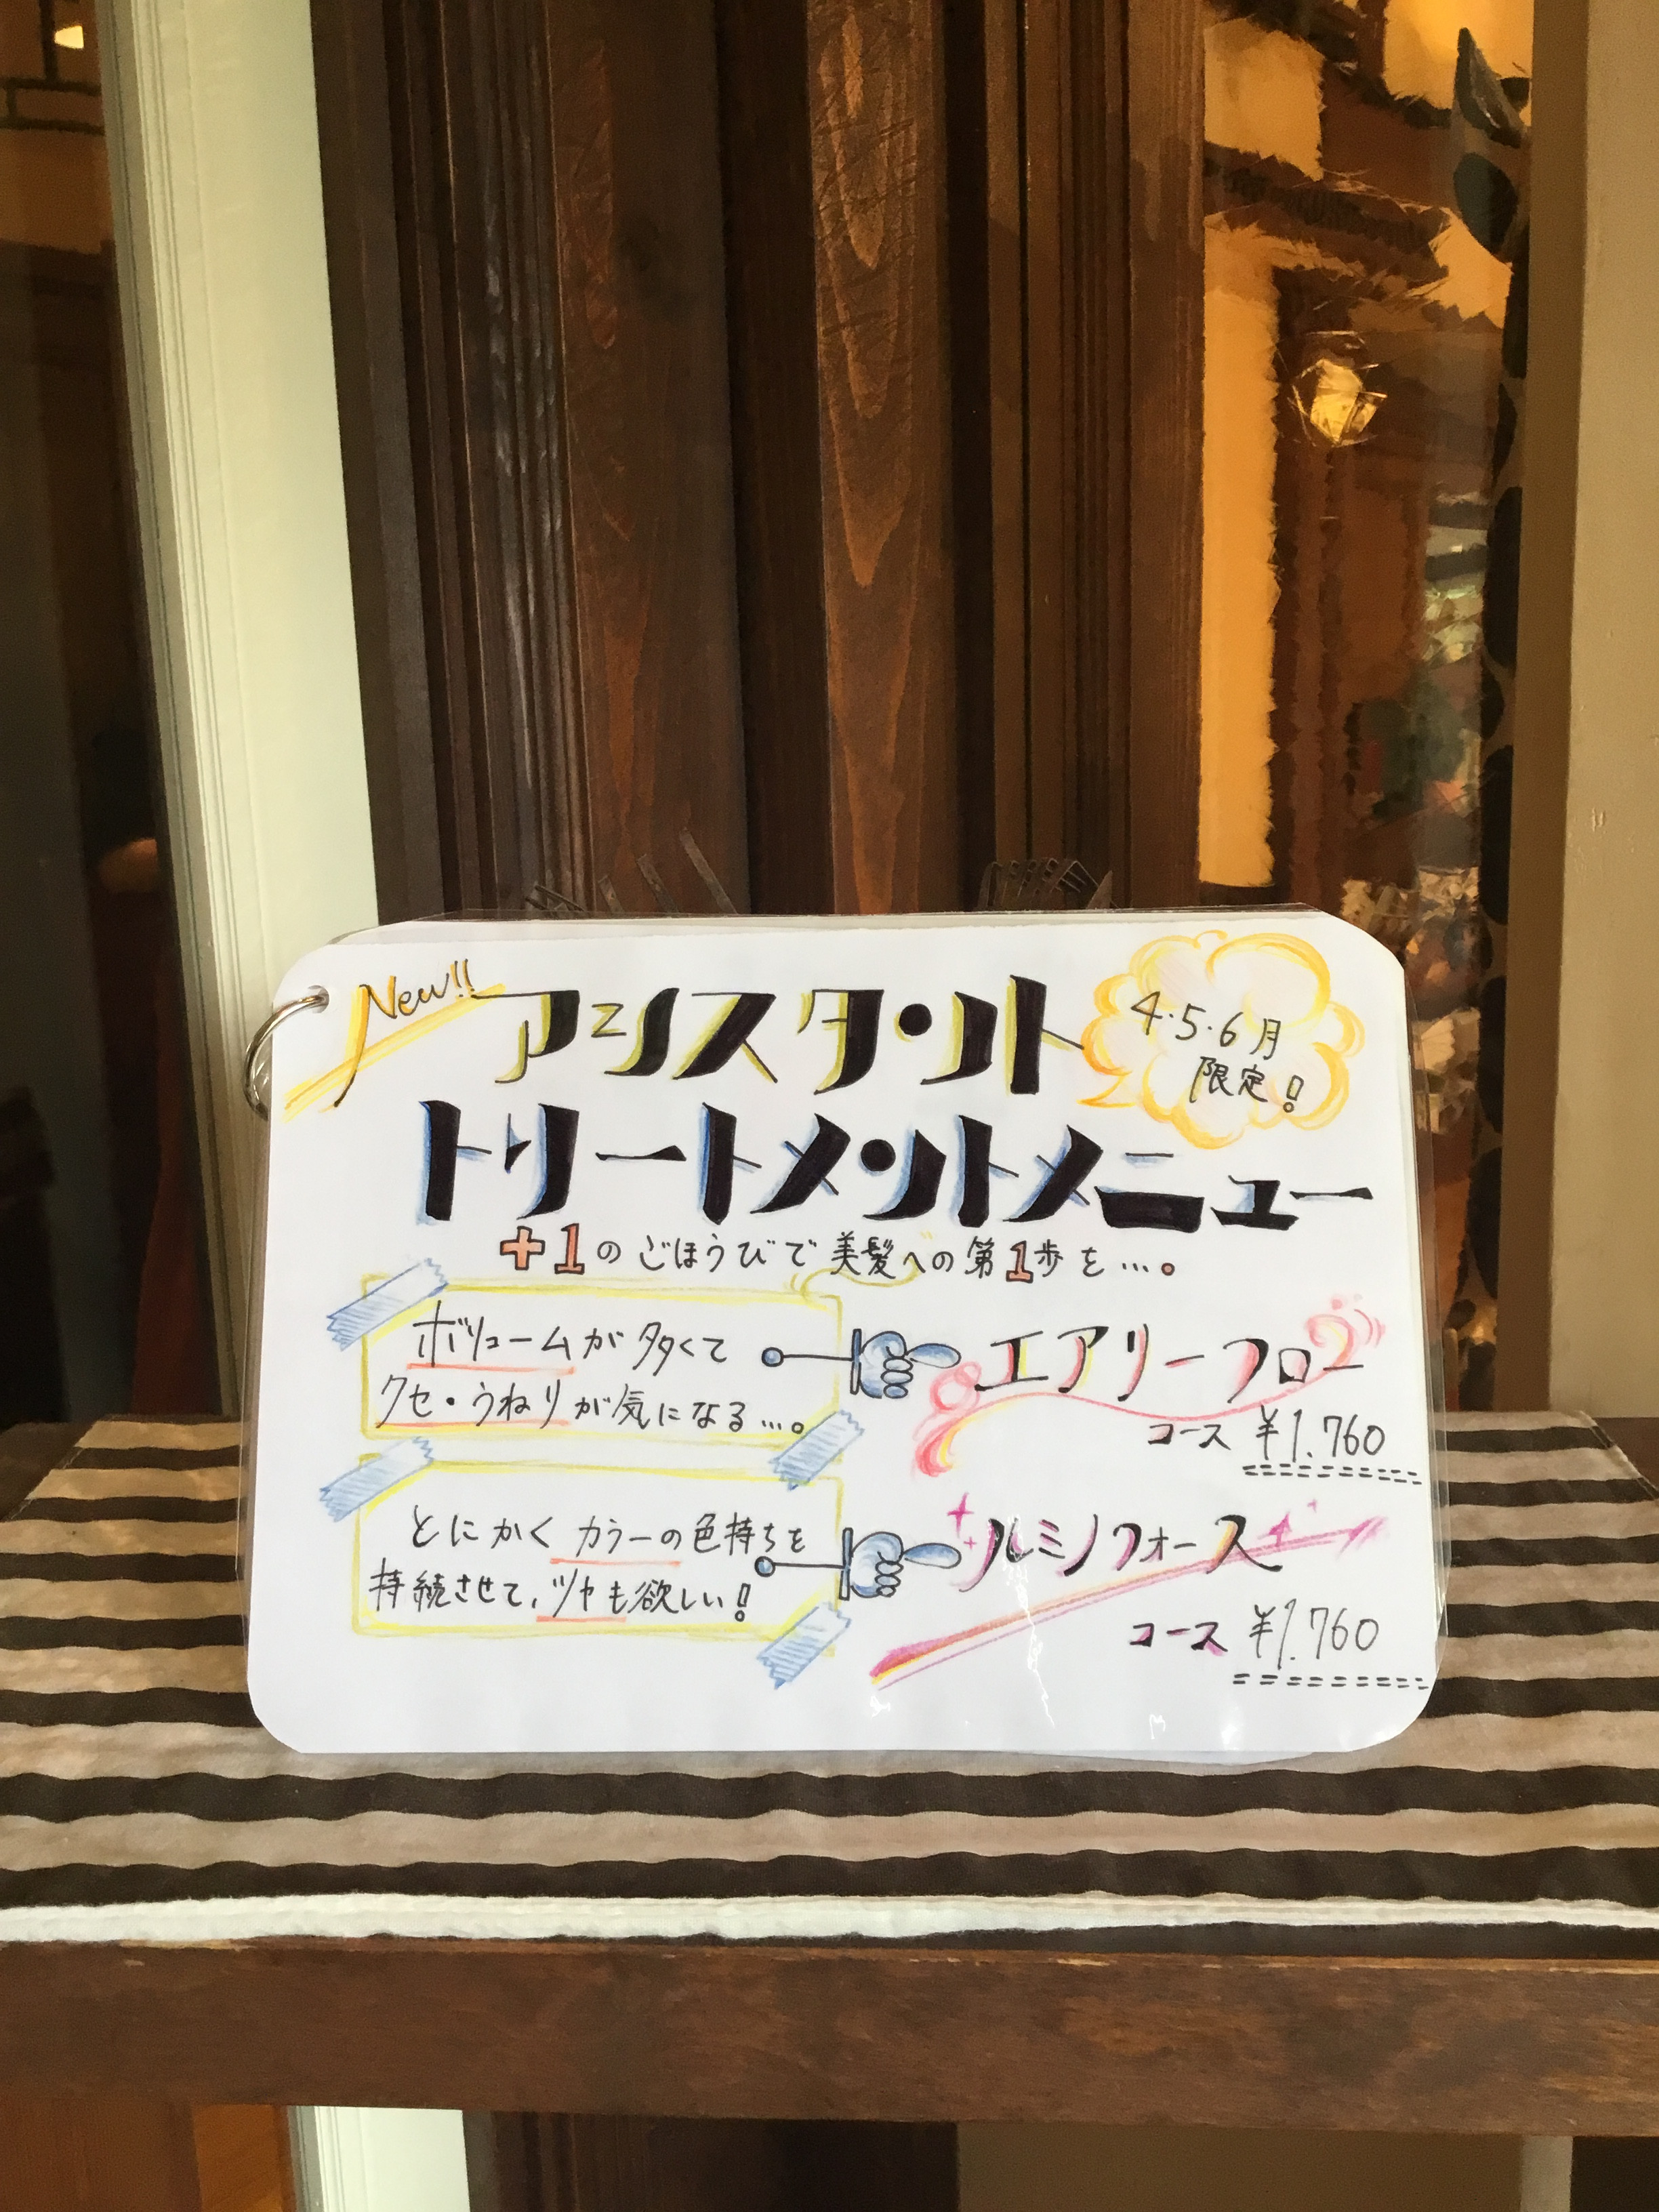 New!!
アシスタント
4・5・6月
限定!
トリートメントメニュー
+1のごほうびで美髪への第1歩を…。
ボリュームが多くて
クセ・うねりが気になる…。
エアリーフロー
コース ¥1.760
とにかくカラーの色持ちを
持続させて、ツヤも欲しい!
ルミノフォース
コース ¥1.760